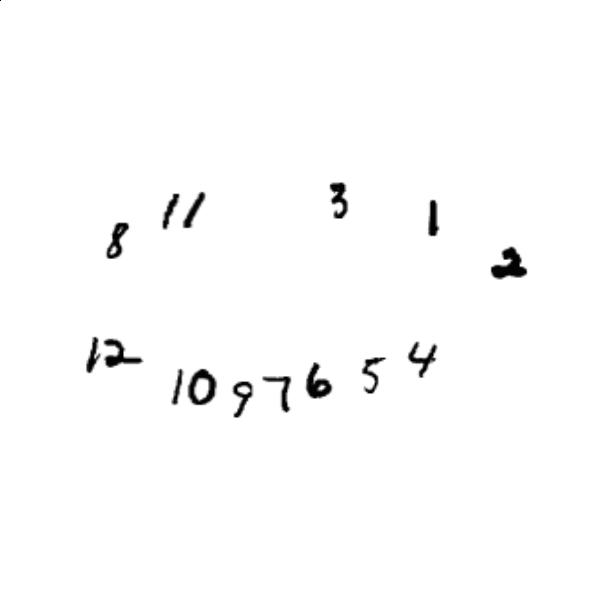 8 11 3 1 2
12 10 9 7 6 5 4